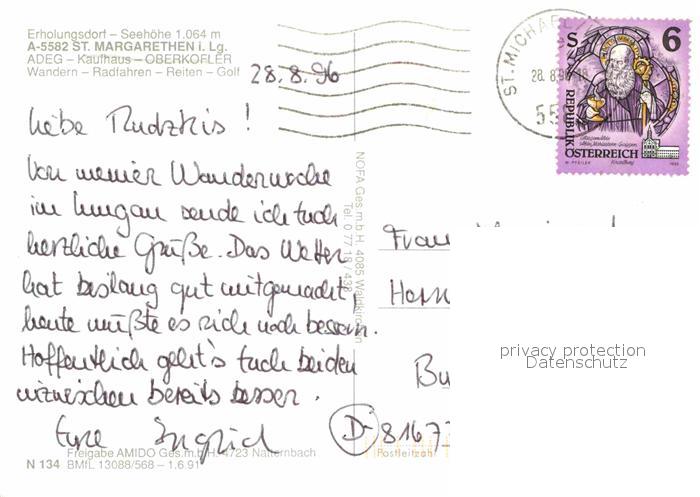 Erholungsdorf – Seehöhe 1.064 m
A-5582 ST. MARGARETHEN i. Lg.
ADEG – Kaufhaus – OBERKOFLER
Wandern – Radfahren – Reiten – Golf
28.8.96
ST. MICHAEL
28. 8. 96-18
55
S 6
REPUBLIK
ÖSTERREICH
Liebe Rudzkis!
Von meiner Wanderwoche
im Lungau sende ich Euch
herzliche Grüße. Das Wetter
hat bislang gut mitgemacht,
heute müßte es sich noch bessern.
Hoffentlich geht's Euch beiden
inzwischen bereits besser.
Eure Ingrid
NOFA Ges.m.b.H. 4085 Waldkirchen
Tel. 0 77 18 / 438
Frau
Herrn
Bu
D-8167
Postleitzahl
privacy protection
Datenschutz
Freigabe AMIDO Ges.m.b.H. 4723 Natternbach
N 134 BMfL 13088/568 – 1.6.91